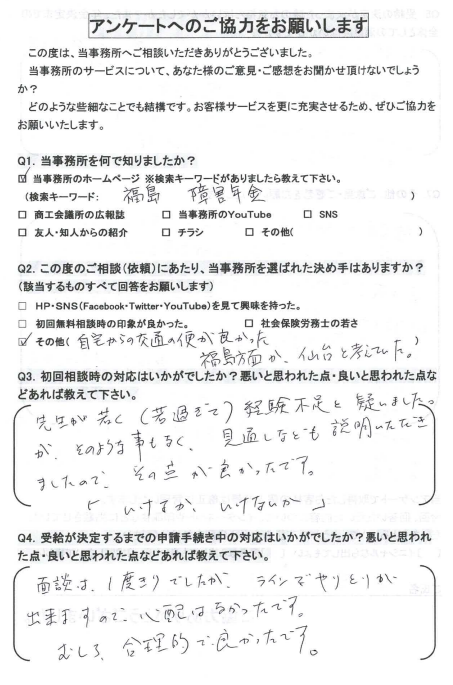 アンケートへのご協力をお願いします
この度は、当事務所へご相談いただきありがとうございました。
当事務所のサービスについて、あなた様のご意見・ご感想をお聞かせ頂けないでしょう
か?
どのような些細なことでも結構です。お客様サービスを更に充実させるため、ぜひご協力を
お願いいたします。
Q1. 当事務所を何で知りましたか?
☑ 当事務所のホームページ ※検索キーワードがありましたら教えて下さい。
(検索キーワード: 福島 障害年金 )
□ 商工会議所の広報誌 □ 当事務所のYouTube □ SNS
□ 友人・知人からの紹介 □ チラシ □ その他( )
Q2. この度のご相談(依頼)にあたり、当事務所を選ばれた決め手はありますか?
(該当するものすべて回答をお願いします)
□ HP・SNS(Facebook・Twitter・YouTube)を見て興味を持った。
□ 初回無料相談時の印象が良かった。 □ 社会保険労務士の若さ
☑ その他( 自宅からの交通の便が良かった
福島方面か、仙台と考えていた。 )
Q3. 初回相談時の対応はいかがでしたか?悪いと思われた点・良いと思われた点な
どあれば教えて下さい。
先生が若く(若過ぎて)経験不足と疑いました。
が、そのような事もなく、見通しなども説明いただき
ましたので、その点が良かったです。
「いけるか、いけないか」
Q4. 受給が決定するまでの申請手続き中の対応はいかがでしたか?悪いと思われ
た点・良いと思われた点などあれば教えて下さい。
面談は、1度きりでしたが、ラインでやりとりが
出来ますので、心配はなかったです。
むしろ、合理的で良かったです。